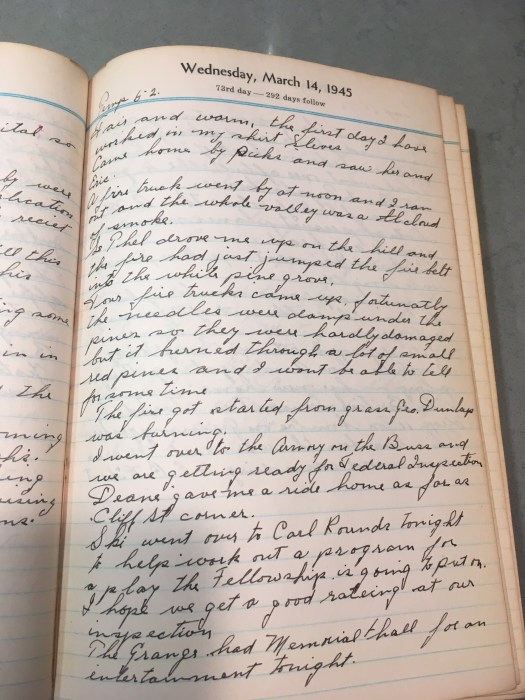 ital so
by were
lication
reciet
ell this
his
ng some
in in
the
ming
hs.
ing
ising
ns.
Wednesday, March 14, 1945
73rd day — 292 days follow
62.
Fair and warm, the first day I have
worked in my shirt sleves
Came home by Dicks and saw her and
Eric.
A fire truck went by at noon and I ran
out and the whole valley was a cloud
of smoke.
Ethel drove me up on the hill and
the fire had just jumped the fire belt
into the white pine grove.
Four fire trucks came up, fortunatly
the needles were damp under the
pines so they were hardly damaged
but it burned through a lot of small
red pines and I wont be able to tell
for some time
The fire got started from grass Geo. Dunlap
was burning.
I went over to the Armory on the Buss and
we are getting ready for Federal Inspection
Deane gave me a ride home as far as
Cliff St corner.
Ski went over to Carl Rounds tonight
to help work out a program for
a play the Fellowship is going to put on.
I hope we get a good rateing at our
inspection
The Grange had Memorial hall for an
intertainment tonight.